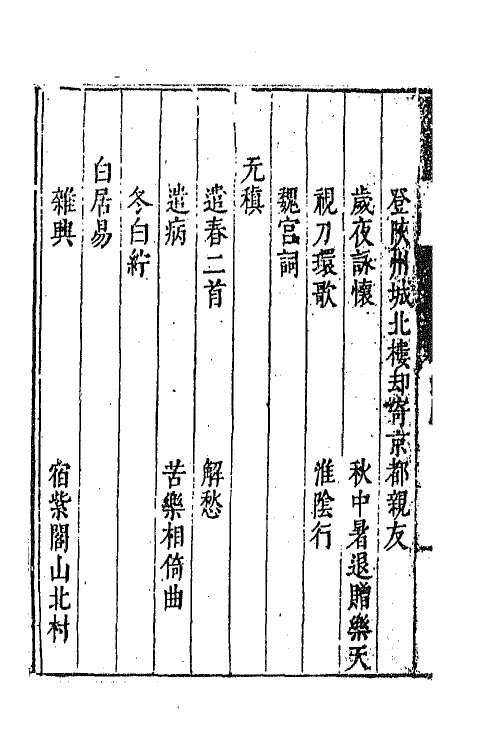 登陝州城北樓却寄京都親友
歲夜詠懷　秋中暑退贈樂天
視刀環歌　淮陰行
魏宮詞
元稹
遣春二首　解愁
遣病　苦樂相倚曲
冬白紵
白居易
雜興　宿紫閣山北村